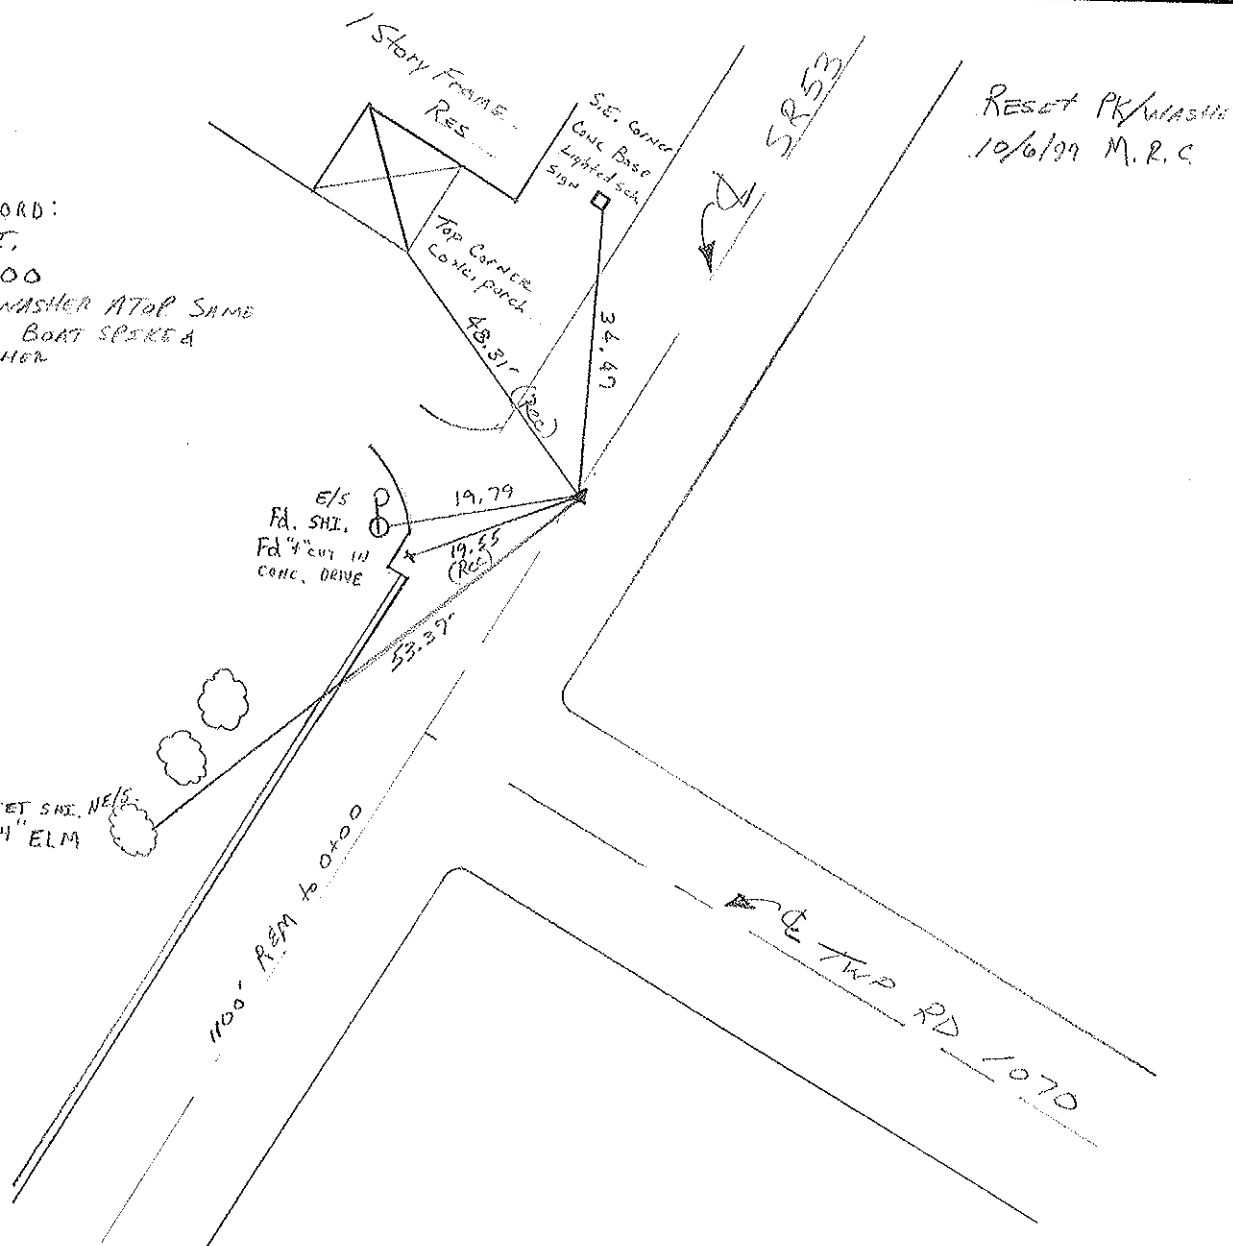 1 Story Frame
Res
S.E. Corner
Conc Base
Lighted Sch
Sign
SR 53
RESET PK/WASHE
10/6/99 M.R.C
ORD:
I.
00
WASHER ATOP SAME
BOAT SPIKE &
HER
Top Corner
Conc. porch
48.31' (Rec)
34.47
E/S
Fd. SHI.
Fd "+" cut in
CONC. DRIVE
19.79
19.55
(Rec)
53.37'
ET SHI. NE/S.
4" ELM
1100' REM to 0+00
℄ TWP RD 1070